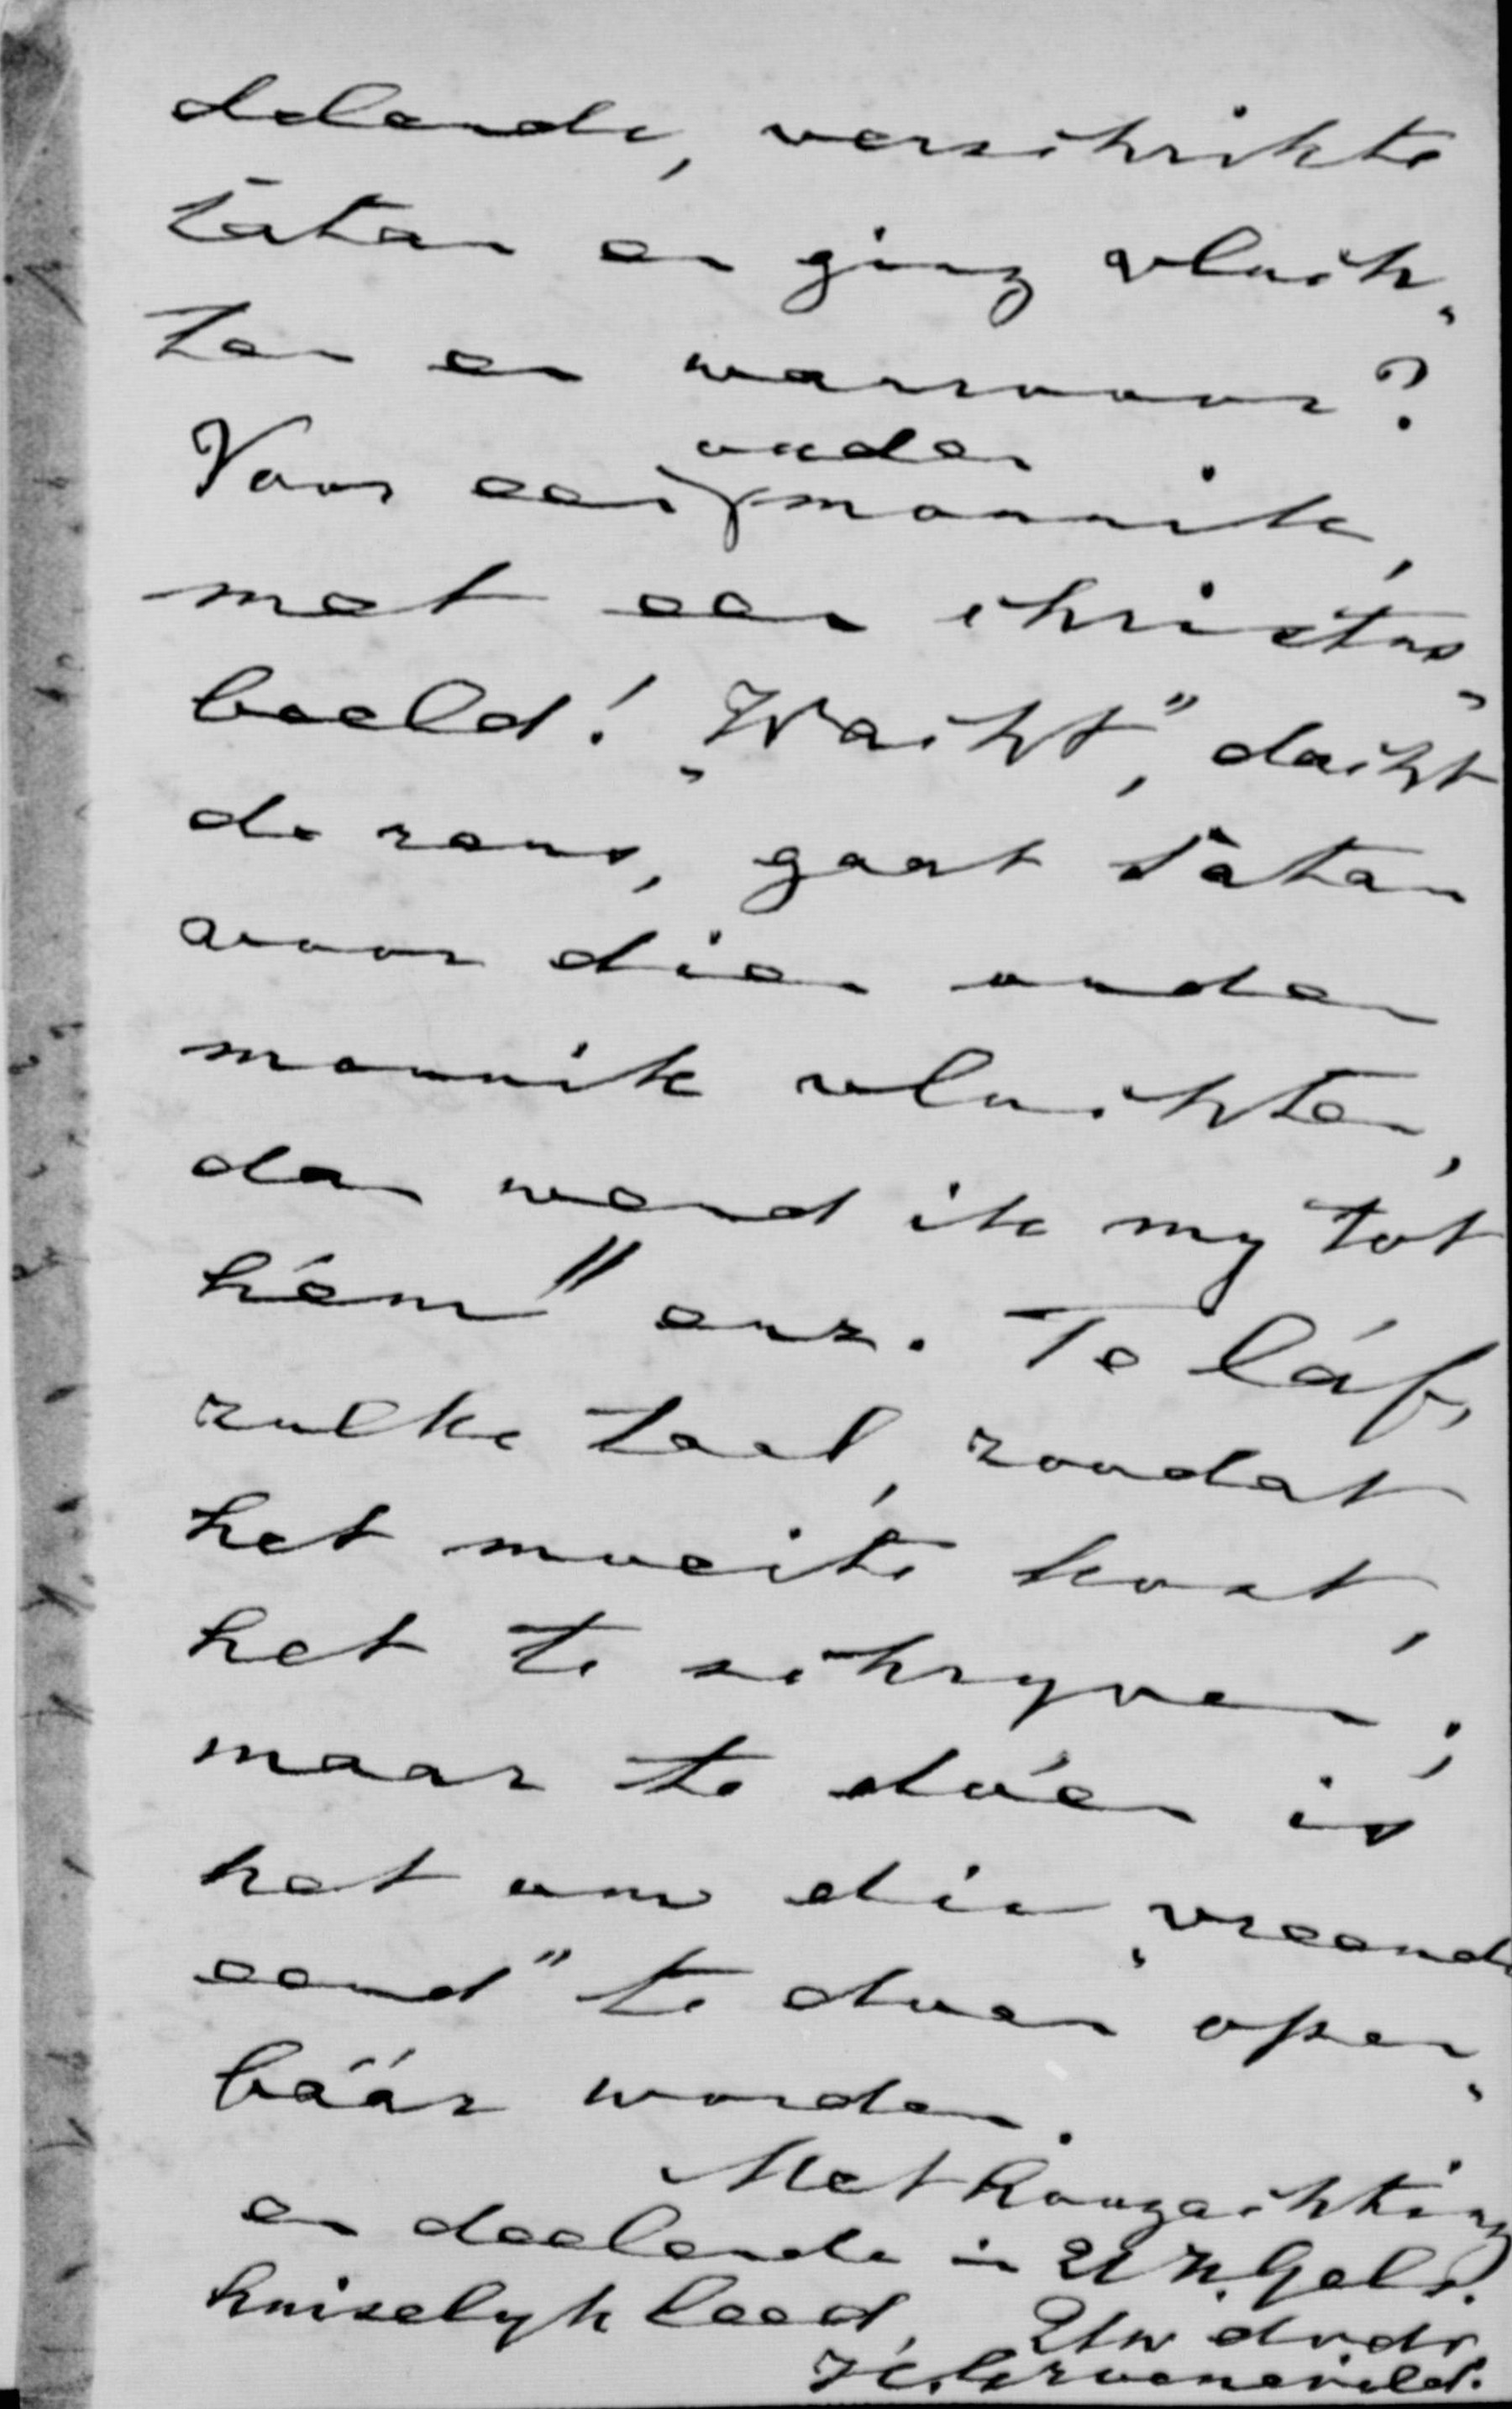 delende, verschrikte
sátan en ging vluch„
ten en waarvoor?
Voor een ouden monnik,
met een christus„
beeld! „Wacht”, dacht
de reus, gaat sátan
voor dien ouden
monnik vluchten,
dan wend ik my tot
hém” enz. Te láf,
zulke taal, zoodat
het moeite kost,
het te schryven;
maar te dóen is
het om die „vreemd„
eend” te doen open„
báár worden.
Met hoogachting
en deelende in UHGel.
huiselyk leed, Uw dvdr
H.C. Groeneveld.